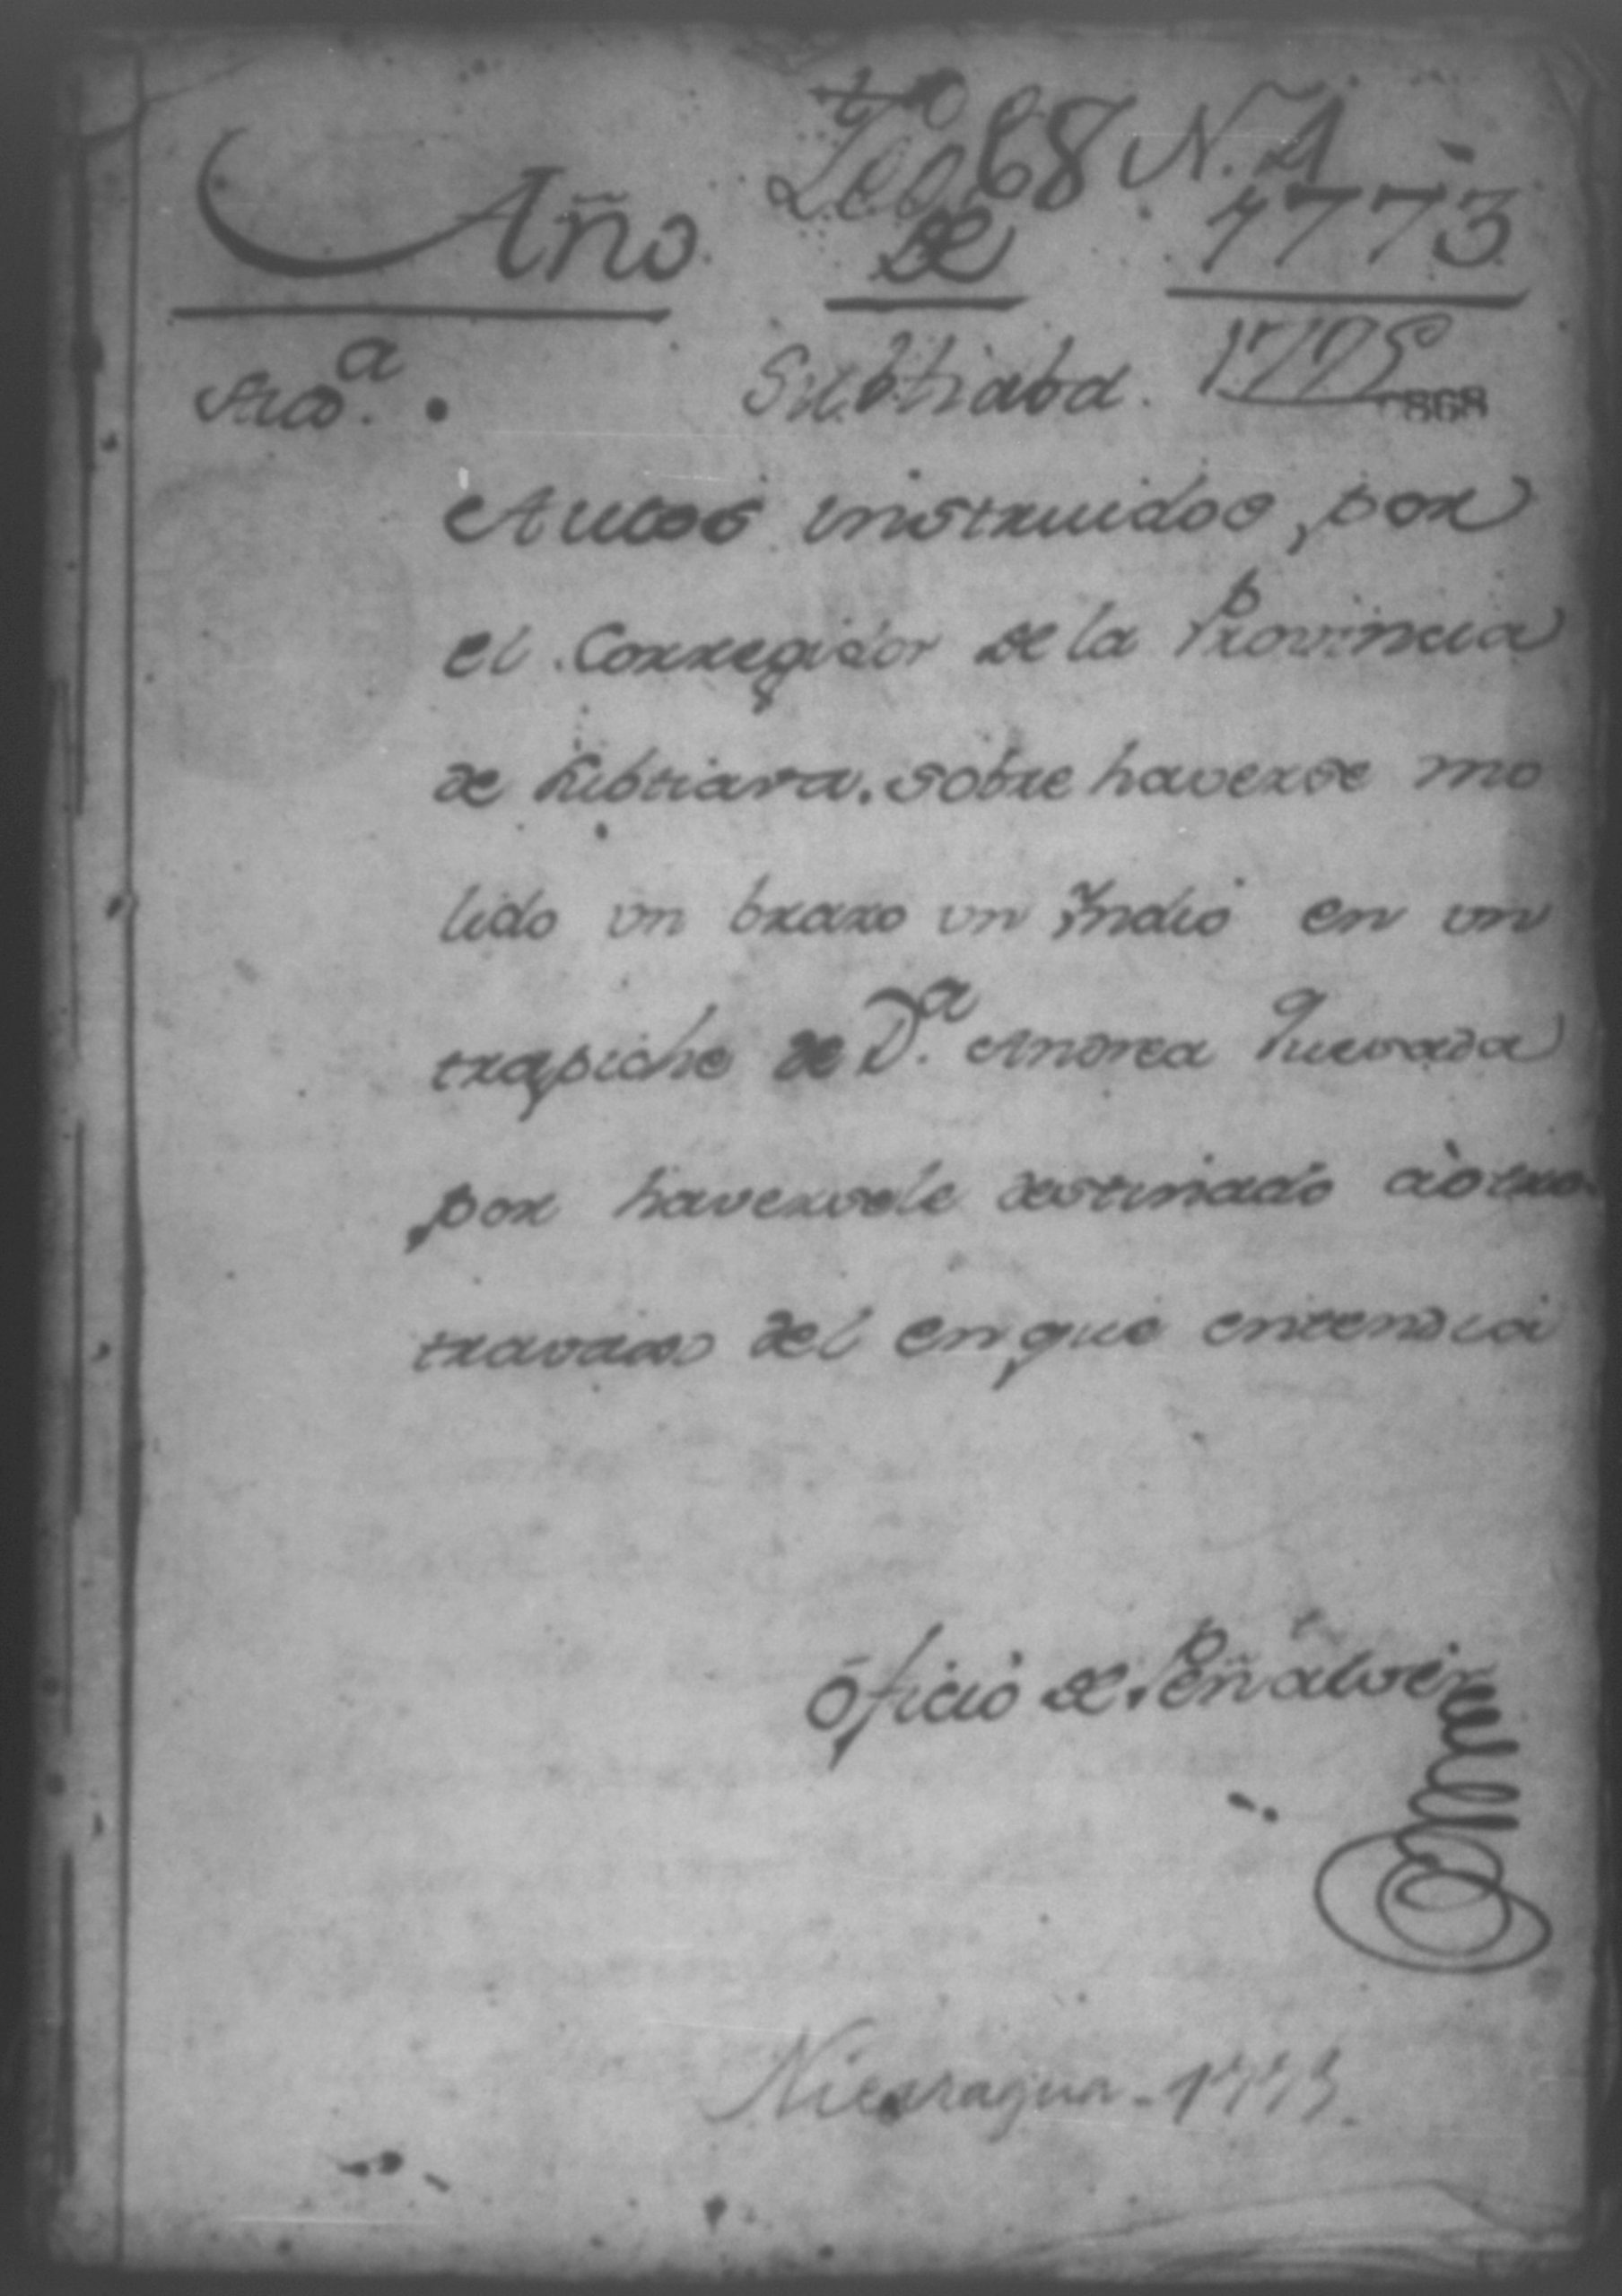 Leg.º 68 N. 4
Año de 1773
Subtiaba. 1775
868
Autos instruidos, por
el Corregidor de la Provincia
de Subtiava. sobre haverse mo
lido un brazo un Yndio en un
trapiche de D.ª Andrea Quevada
por haversele destinado à otro
travaxo del en que entendia
Oficio de Peñalver
Nicaragua - 1773.